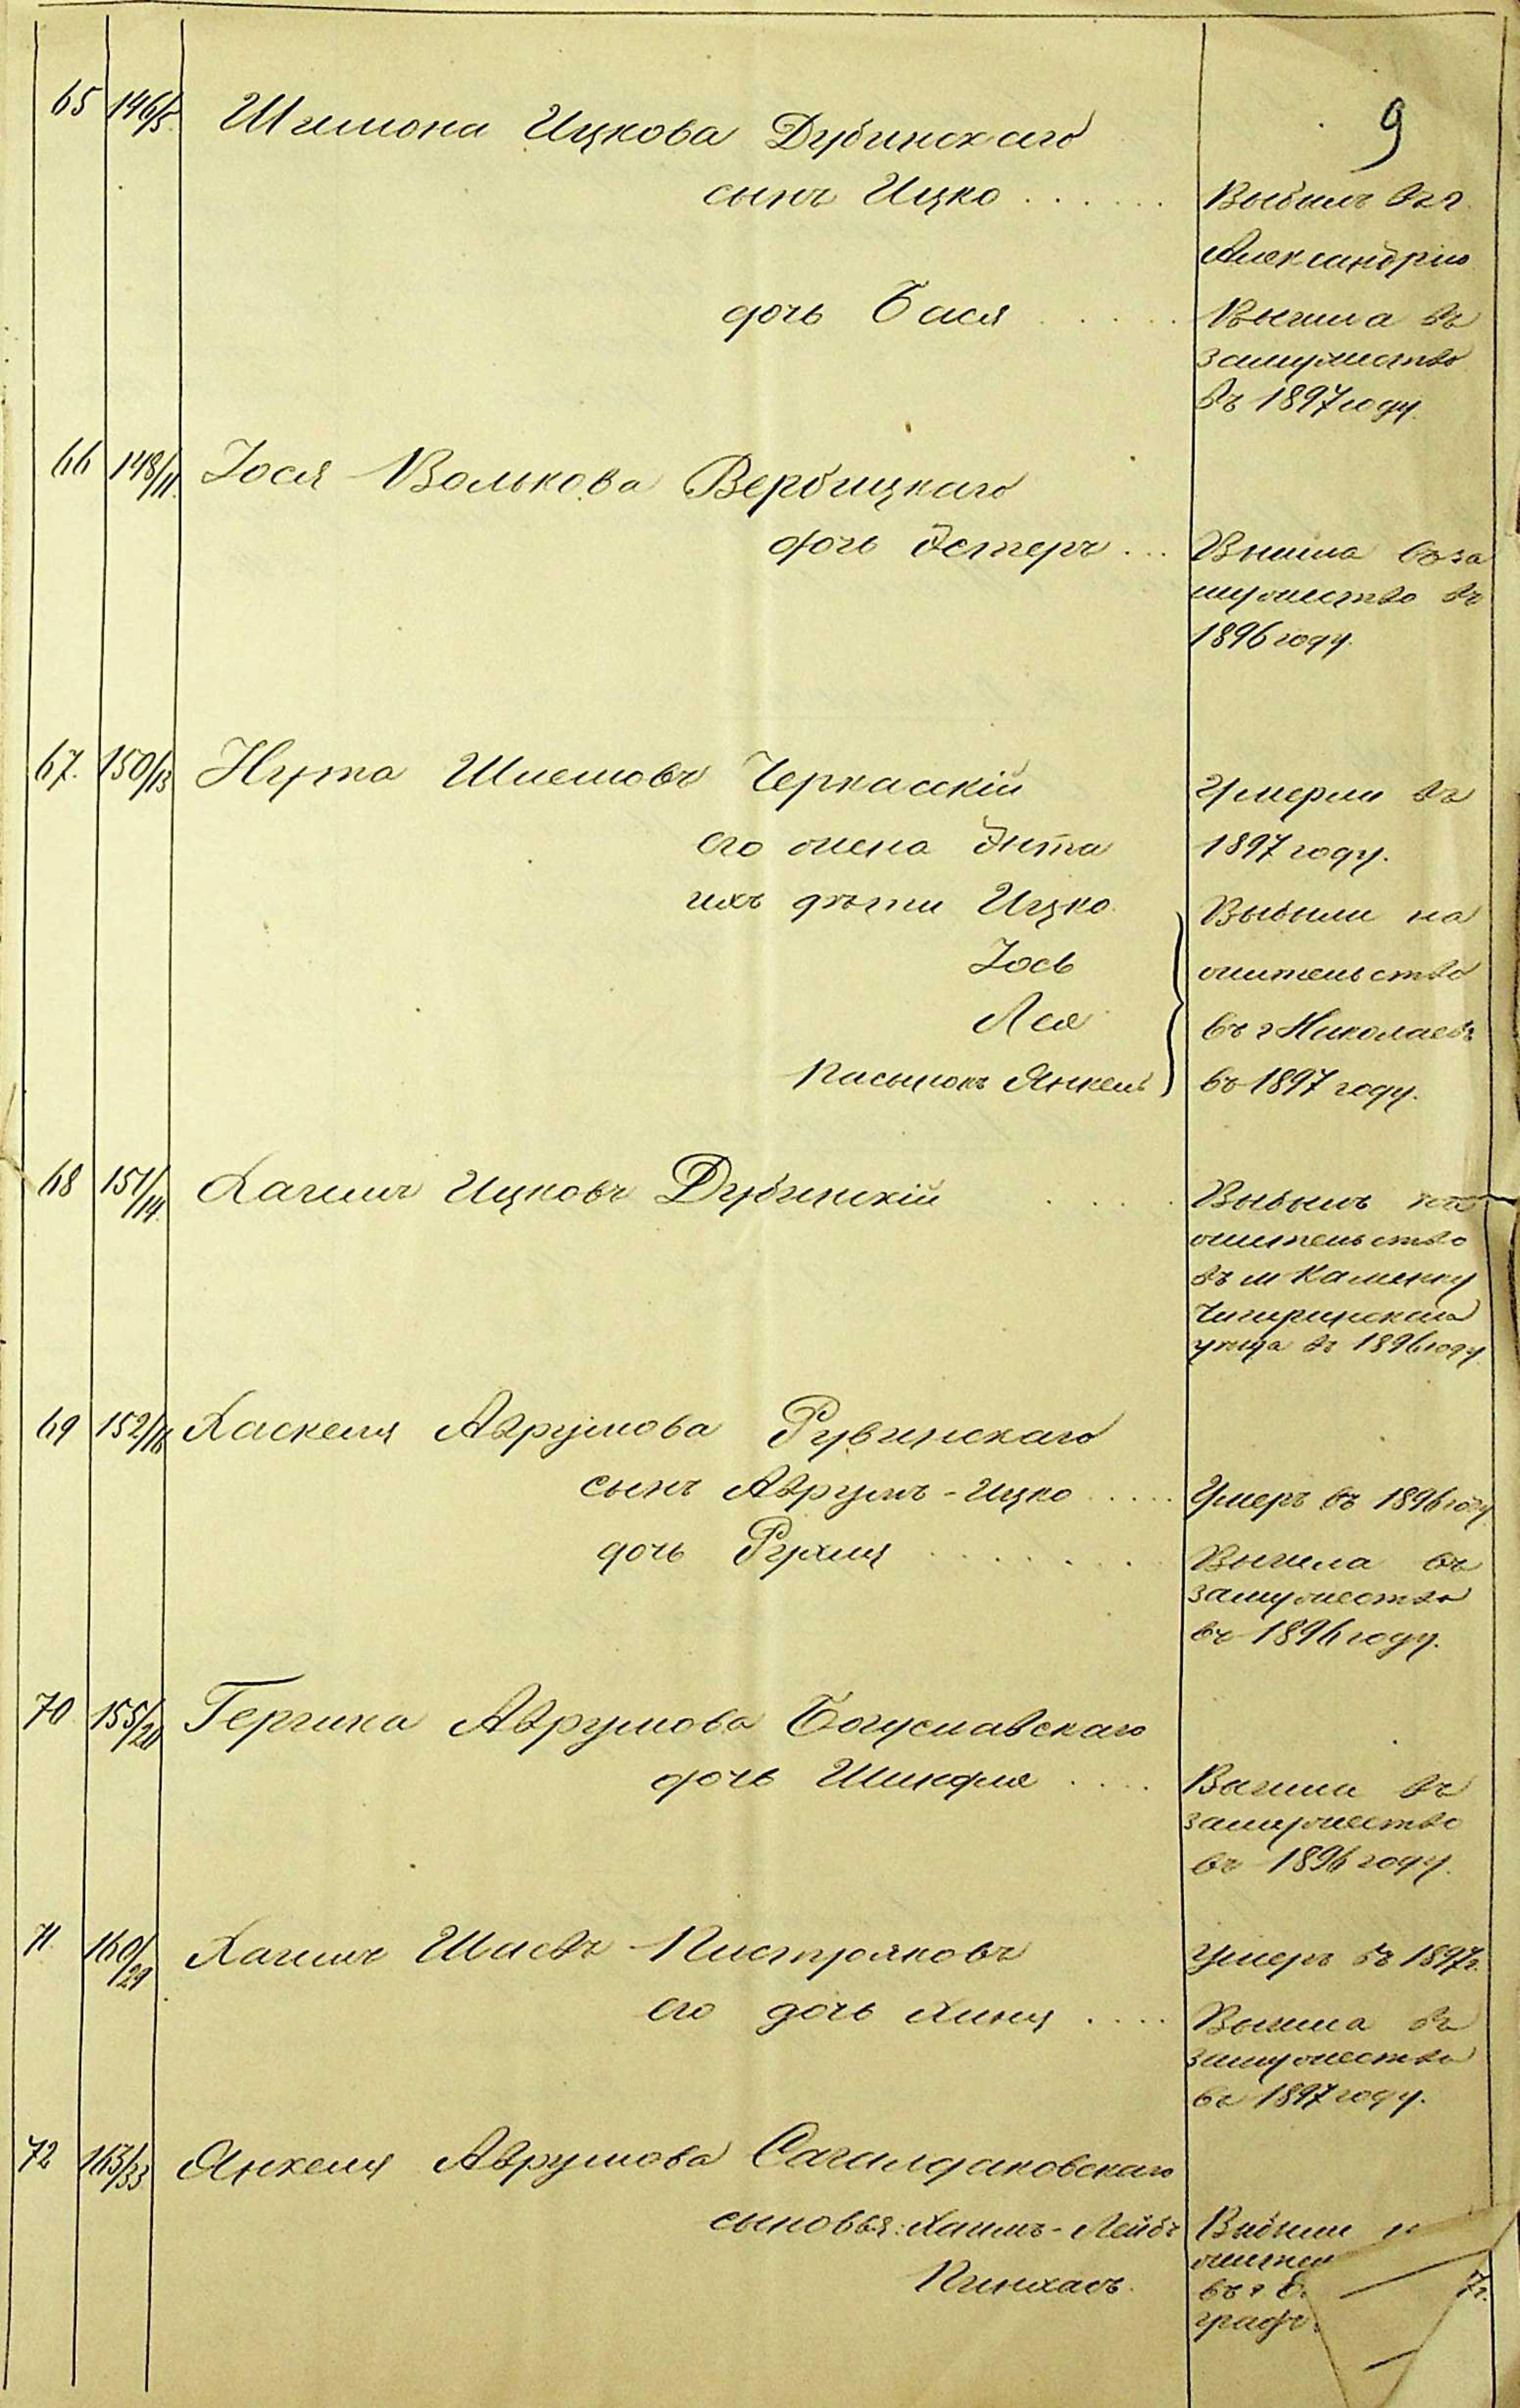 9
65 146/5 Шимона Ицкова Дубинскаго
сынъ Ицко . . . . . . Выбылъ въ г.
Александрію
дочь Бася . . . . . Вышла въ
замужество
въ 1897 году.
66 148/11. Іося Волькова Вербицкаго
дочь Эстеръ . . . Вышла въ за
мужество въ
1896 году.
67. 150/13 Нута Шлемовъ Черкасскій Умерли въ
его жена Энта 1897 году.
ихъ дѣти Ицко Выбыли на
Іось жительство
Лея въ г Николаевъ
Пасынокъ Янкель въ 1897 году.
68 151/14. Хаимъ Ицковъ Дубинскій . . . . Выбылъ на
жительство
въ м Каменку
Чигиринскаго
уѣзда въ 1896 году.
69 152/16 Хаскеля Аврумова Рувинскаго
сынъ Аврумъ-Ицко . . . . . Умеръ въ 1896 году
дочь Рухля . . . . . . . . Вышла въ
замужество
въ 1896 году.
70 155/20 Гершка Аврумова Богуславскаго
дочь Шиндля . . . . Вышла въ
замужество
въ 1896 году.
71. 160/29 Хаимъ Пистряковъ Умеръ въ 1897 г.
его дочь Хиня . . . . Вышла въ
замужество
въ 1897 году.
72 163/33 Янкеля Аврумова Сагалдаковскаго
сыновья: Хаимъ-Лейбъ Выбыли
Пинхасъ. въ г 7 г.